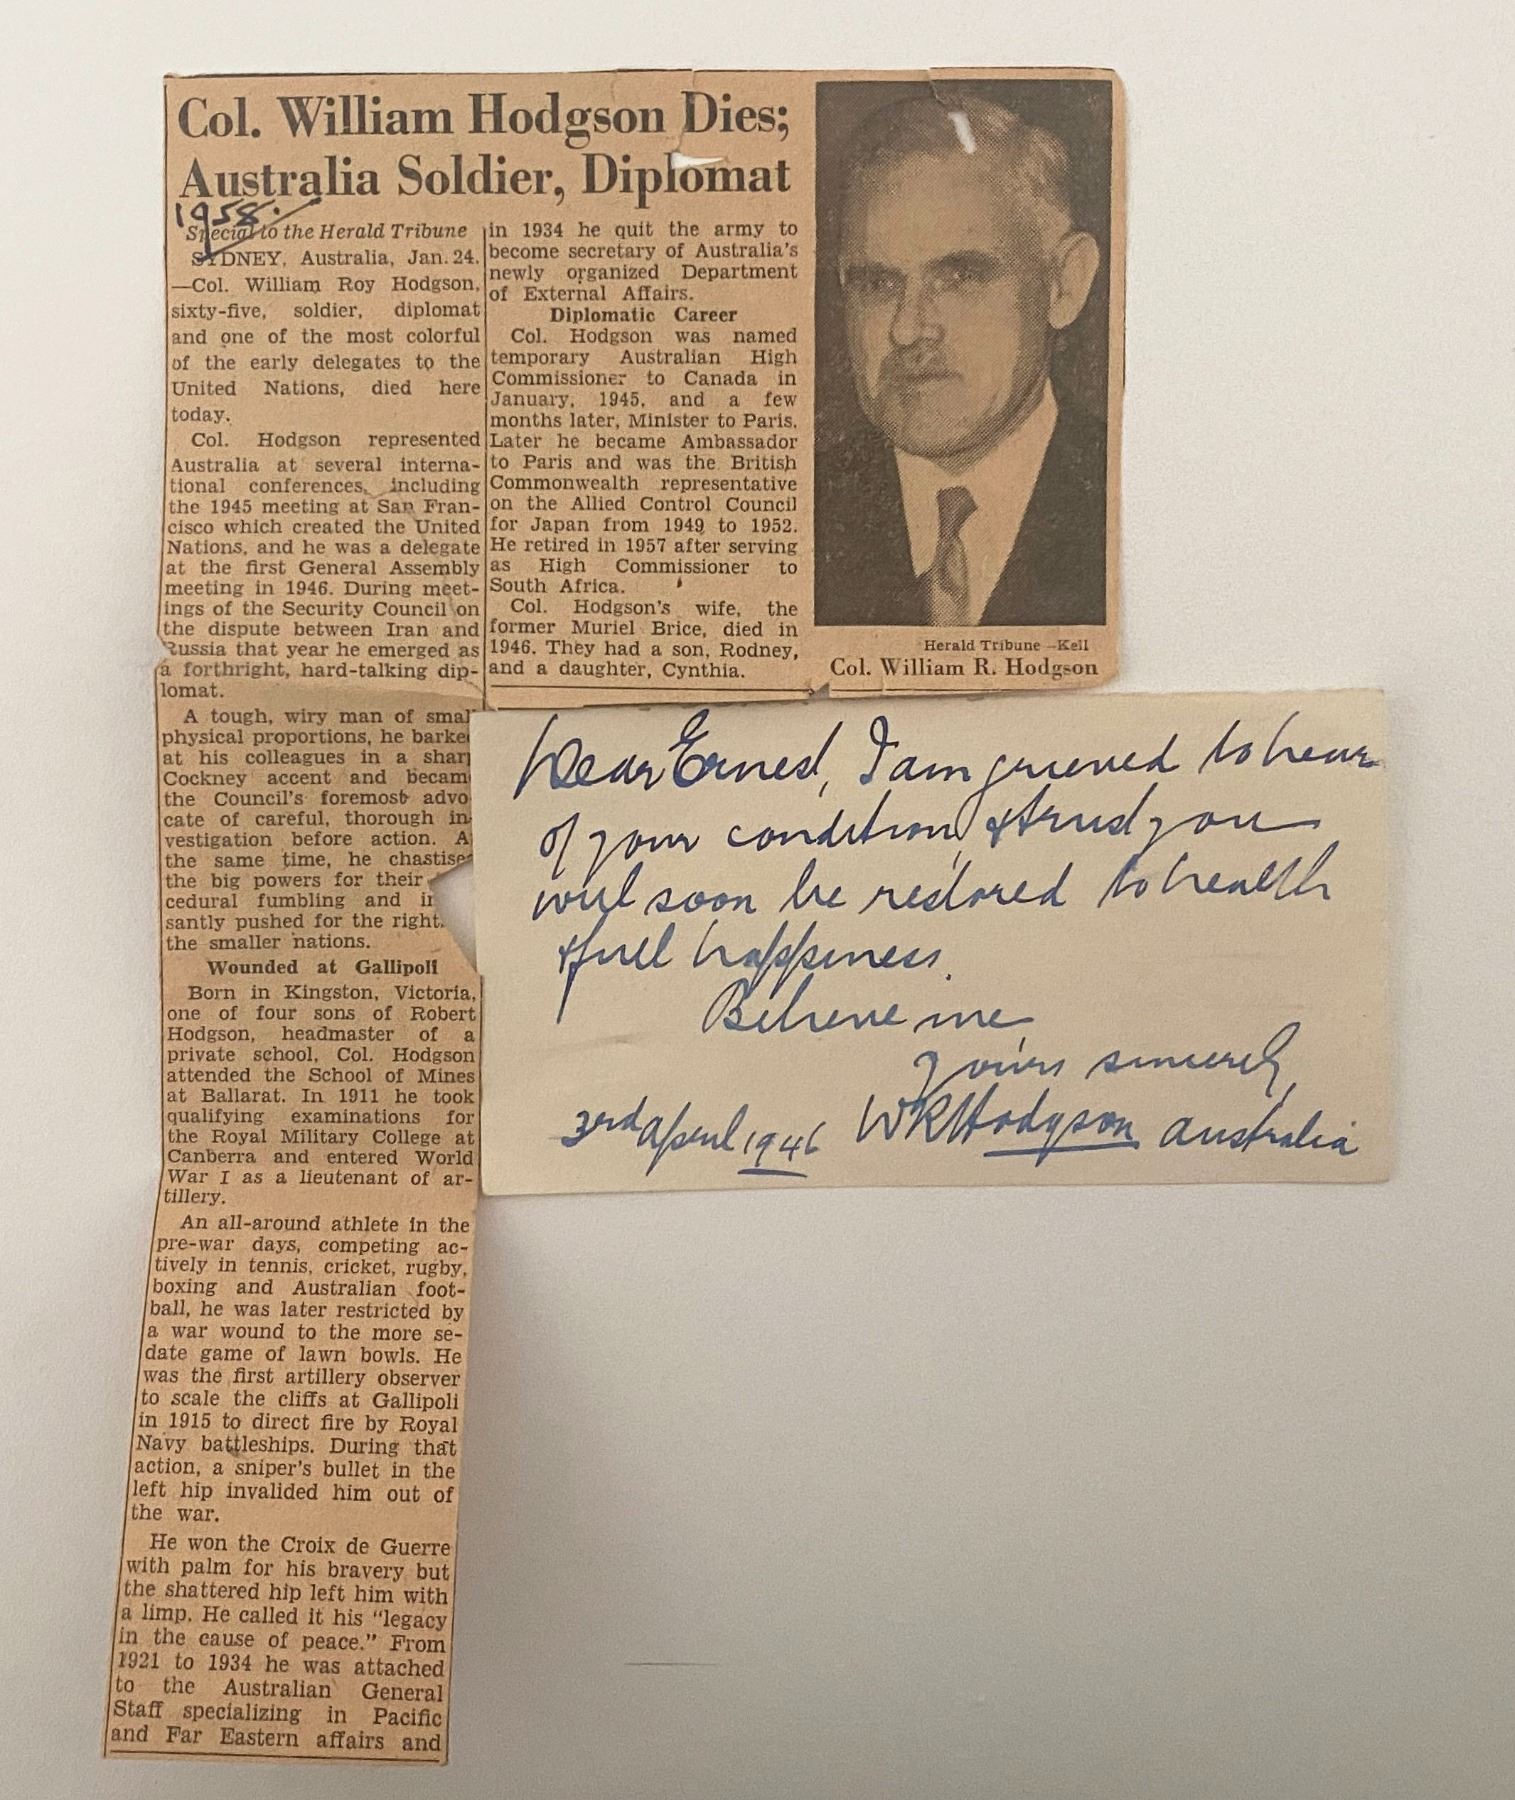 Col. William Hodgson Dies;
Australia Soldier, Diplomat
1958.
Special to the Herald Tribune
SYDNEY, Australia, Jan. 24.
—Col. William Roy Hodgson,
sixty-five, soldier, diplomat
and one of the most colorful
of the early delegates to the
United Nations, died here
today.
Col. Hodgson represented
Australia at several interna-
tional conferences, including
the 1945 meeting at San Fran-
cisco which created the United
Nations, and he was a delegate
at the first General Assembly
meeting in 1946. During meet-
ings of the Security Council on
the dispute between Iran and
Russia that year he emerged as
a forthright, hard-talking dip-
lomat.
A tough, wiry man of small
physical proportions, he barke
at his colleagues in a shar
Cockney accent and becam
the Council's foremost advo-
cate of careful, thorough in-
vestigation before action. A
the same time, he chastise
the big powers for their
cedural fumbling and in
santly pushed for the right
the smaller nations.
Wounded at Gallipoli
Born in Kingston, Victoria,
one of four sons of Robert
Hodgson, headmaster of a
private school, Col. Hodgson
attended the School of Mines
at Ballarat. In 1911 he took
qualifying examinations for
the Royal Military College at
Canberra and entered World
War I as a lieutenant of ar-
tillery.
An all-around athlete in the
pre-war days, competing ac-
tively in tennis, cricket, rugby,
boxing and Australian foot-
ball, he was later restricted by
a war wound to the more se-
date game of lawn bowls. He
was the first artillery observer
to scale the cliffs at Gallipoli
in 1915 to direct fire by Royal
Navy battleships. During that
action, a sniper's bullet in the
left hip invalided him out of
the war.
He won the Croix de Guerre
with palm for his bravery but
the shattered hip left him with
a limp. He called it his "legacy
in the cause of peace." From
1921 to 1934 he was attached
to the Australian General
Staff specializing in Pacific
and Far Eastern affairs and
in 1934 he quit the army to
become secretary of Australia's
newly organized Department
of External Affairs.
Diplomatic Career
Col. Hodgson was named
temporary Australian High
Commissioner to Canada in
January, 1945, and a few
months later, Minister to Paris.
Later he became Ambassador
to Paris and was the British
Commonwealth representative
on the Allied Control Council
for Japan from 1949 to 1952.
He retired in 1957 after serving
as High Commissioner to
South Africa.
Col. Hodgson's wife, the
former Muriel Brice, died in
1946. They had a son, Rodney,
and a daughter, Cynthia.
Herald Tribune—Kell
Col. William R. Hodgson
Dear Ernest, I am grieved to hear
of your condition, & trust you
will soon be restored to health
& full happiness.
Believe me
Yours sincerely,
3rd April 1946 WRHodgson Australia